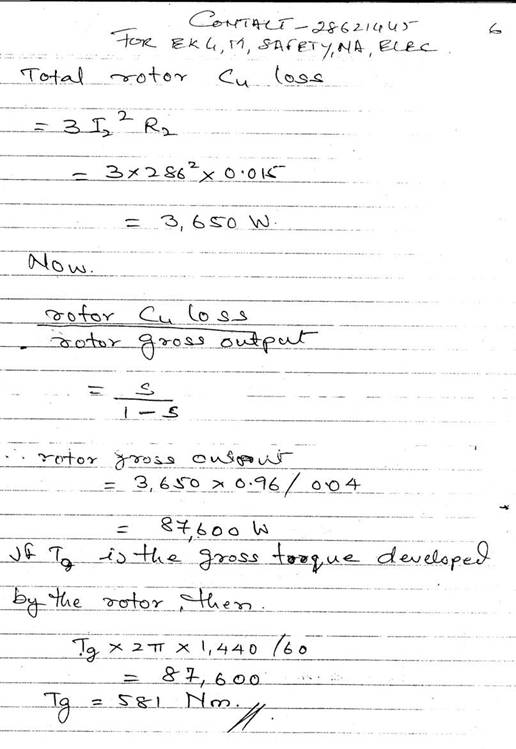 CONTACT - 28621445
6
FOR EKG, M, SAFETY, NA, ELEC
Total rotor Cu loss
= 3 I₂² R₂
= 3 × 286² × 0.015
= 3,650 W.
Now.
rotor Cu loss
rotor gross output
= S
1 - S
∴ rotor gross output
= 3,650 × 0.96 / 0.04
= 87,600 W
If Tg is the gross torque developed
by the rotor, then.
Tg × 2π × 1,440 / 60
= 87,600
Tg = 581 Nm.